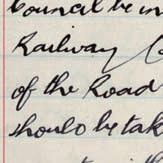 Council be in
Railway
of the Road
should be tak